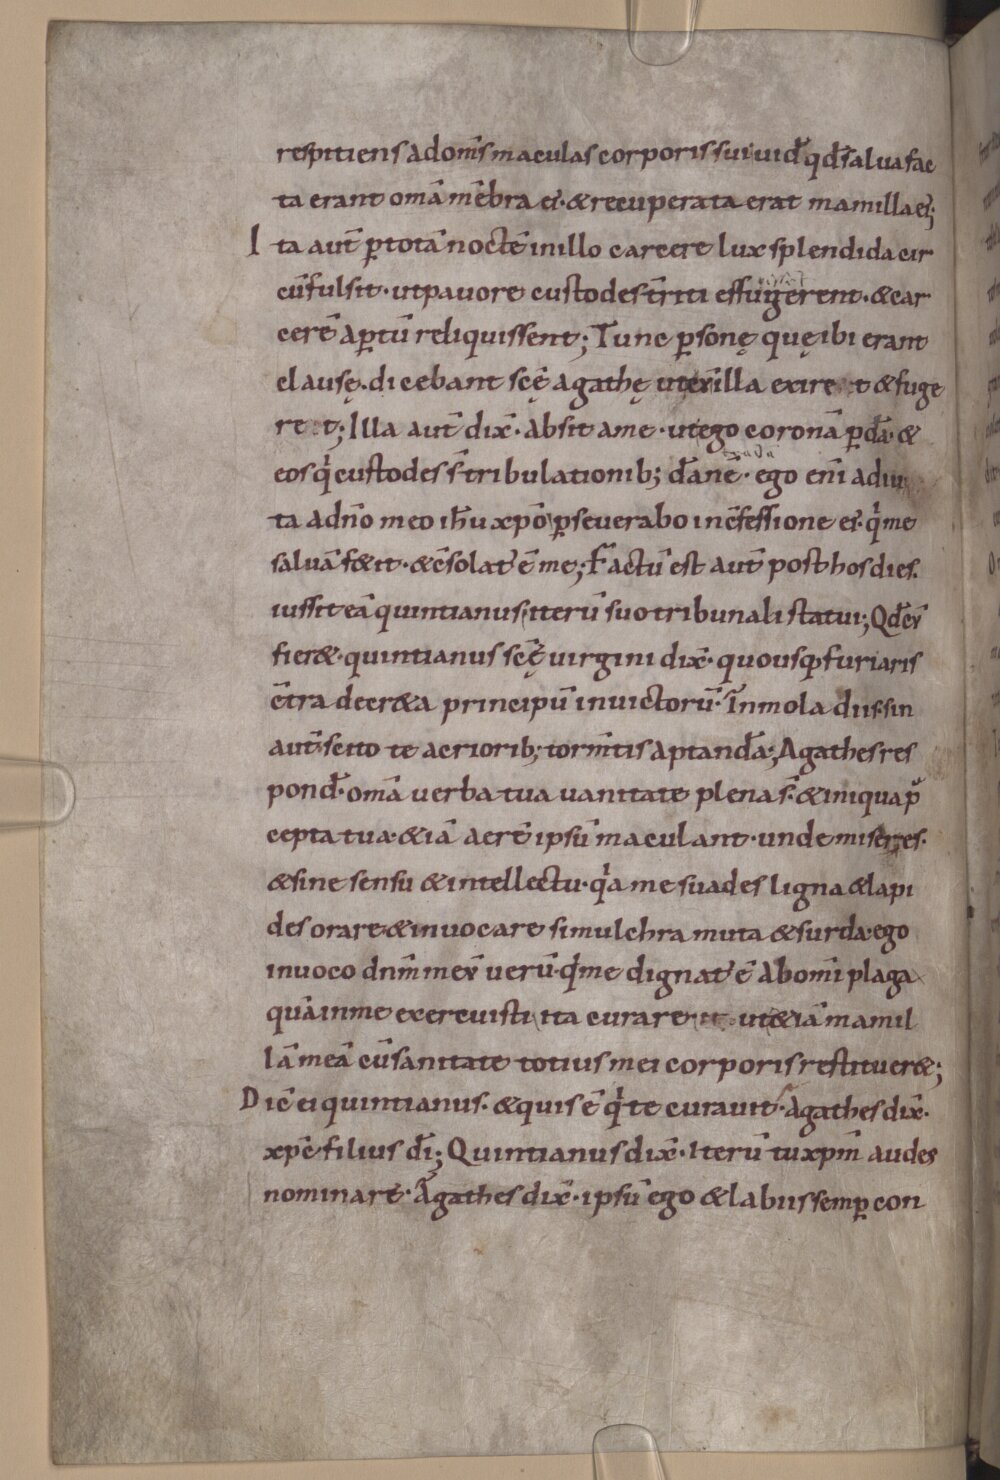 respitiens ad om̄s maculas corporis sui uid̄ qd̄ salua fac
ta erant om̄a mēbra ei᷒ · & recuperata erat mamilla ei᷒;
Ita aut̄ ꝑ totā noctē in illo carcere lux splendida cir
cū fulsit · ut pauore custodes t̄riti effugerent · & car
cerē aꝑtū reliquissent; Tunc ꝑsonę quę ibi erant
clausę · dicebant scę̄ agathę ut exi illa exire t & fuge
re t; Illa aut̄ dix̄ · absit a me · ut ego coronā ꝑdā · &
eos qͥ custodes s̄ tribulationib; dān̄e · ego eni᷒ adiu
ta a dn̄o meo ih̄u xp̄o ꝑseuerabo in c̄fessione ei᷒ · qͥ me
saluā fecit · & c̄solat᷒ ē me; Factū est aut̄ post hos dies ·
iussit eā quintianus iterū suo tribunali statui; Qd̄ cū
fier& · quintianus scę̄ uirgini dix̄ · quousq; furiaris
c̄tra decr&a principū inuictorū · Inmola diis · sin
aut̄ scito te acriorib; torm̄tis aptandā; Agathes res
pond̄ · om̄a uerba tua uanitate plena s̄ · & iniqua p̄
cepta tua · &iā aerē ipsū maculant · unde miser es ·
& sine sensu & intellectu · qͥa me suades ligna & lapi
des orare & inuocare simulchra muta & surda · ego
inuoco dn̄m meū uerū · qͥ me dignat᷒ ē ab om̄i plaga
quā in me exercuisti ita curare ut &iā mamil
lā meā cū sanitate totius mei corporis restituer&;
Dic̄ ei quintianus · & quis ē qͥ te curauit · Agathes dix̄ ·
xp̄c filius dī; Quintianus dix̄ · Iterū tu xpm̄ audes
nominare · Agathes dix̄ · ipsū ego & labiis semꝑ con